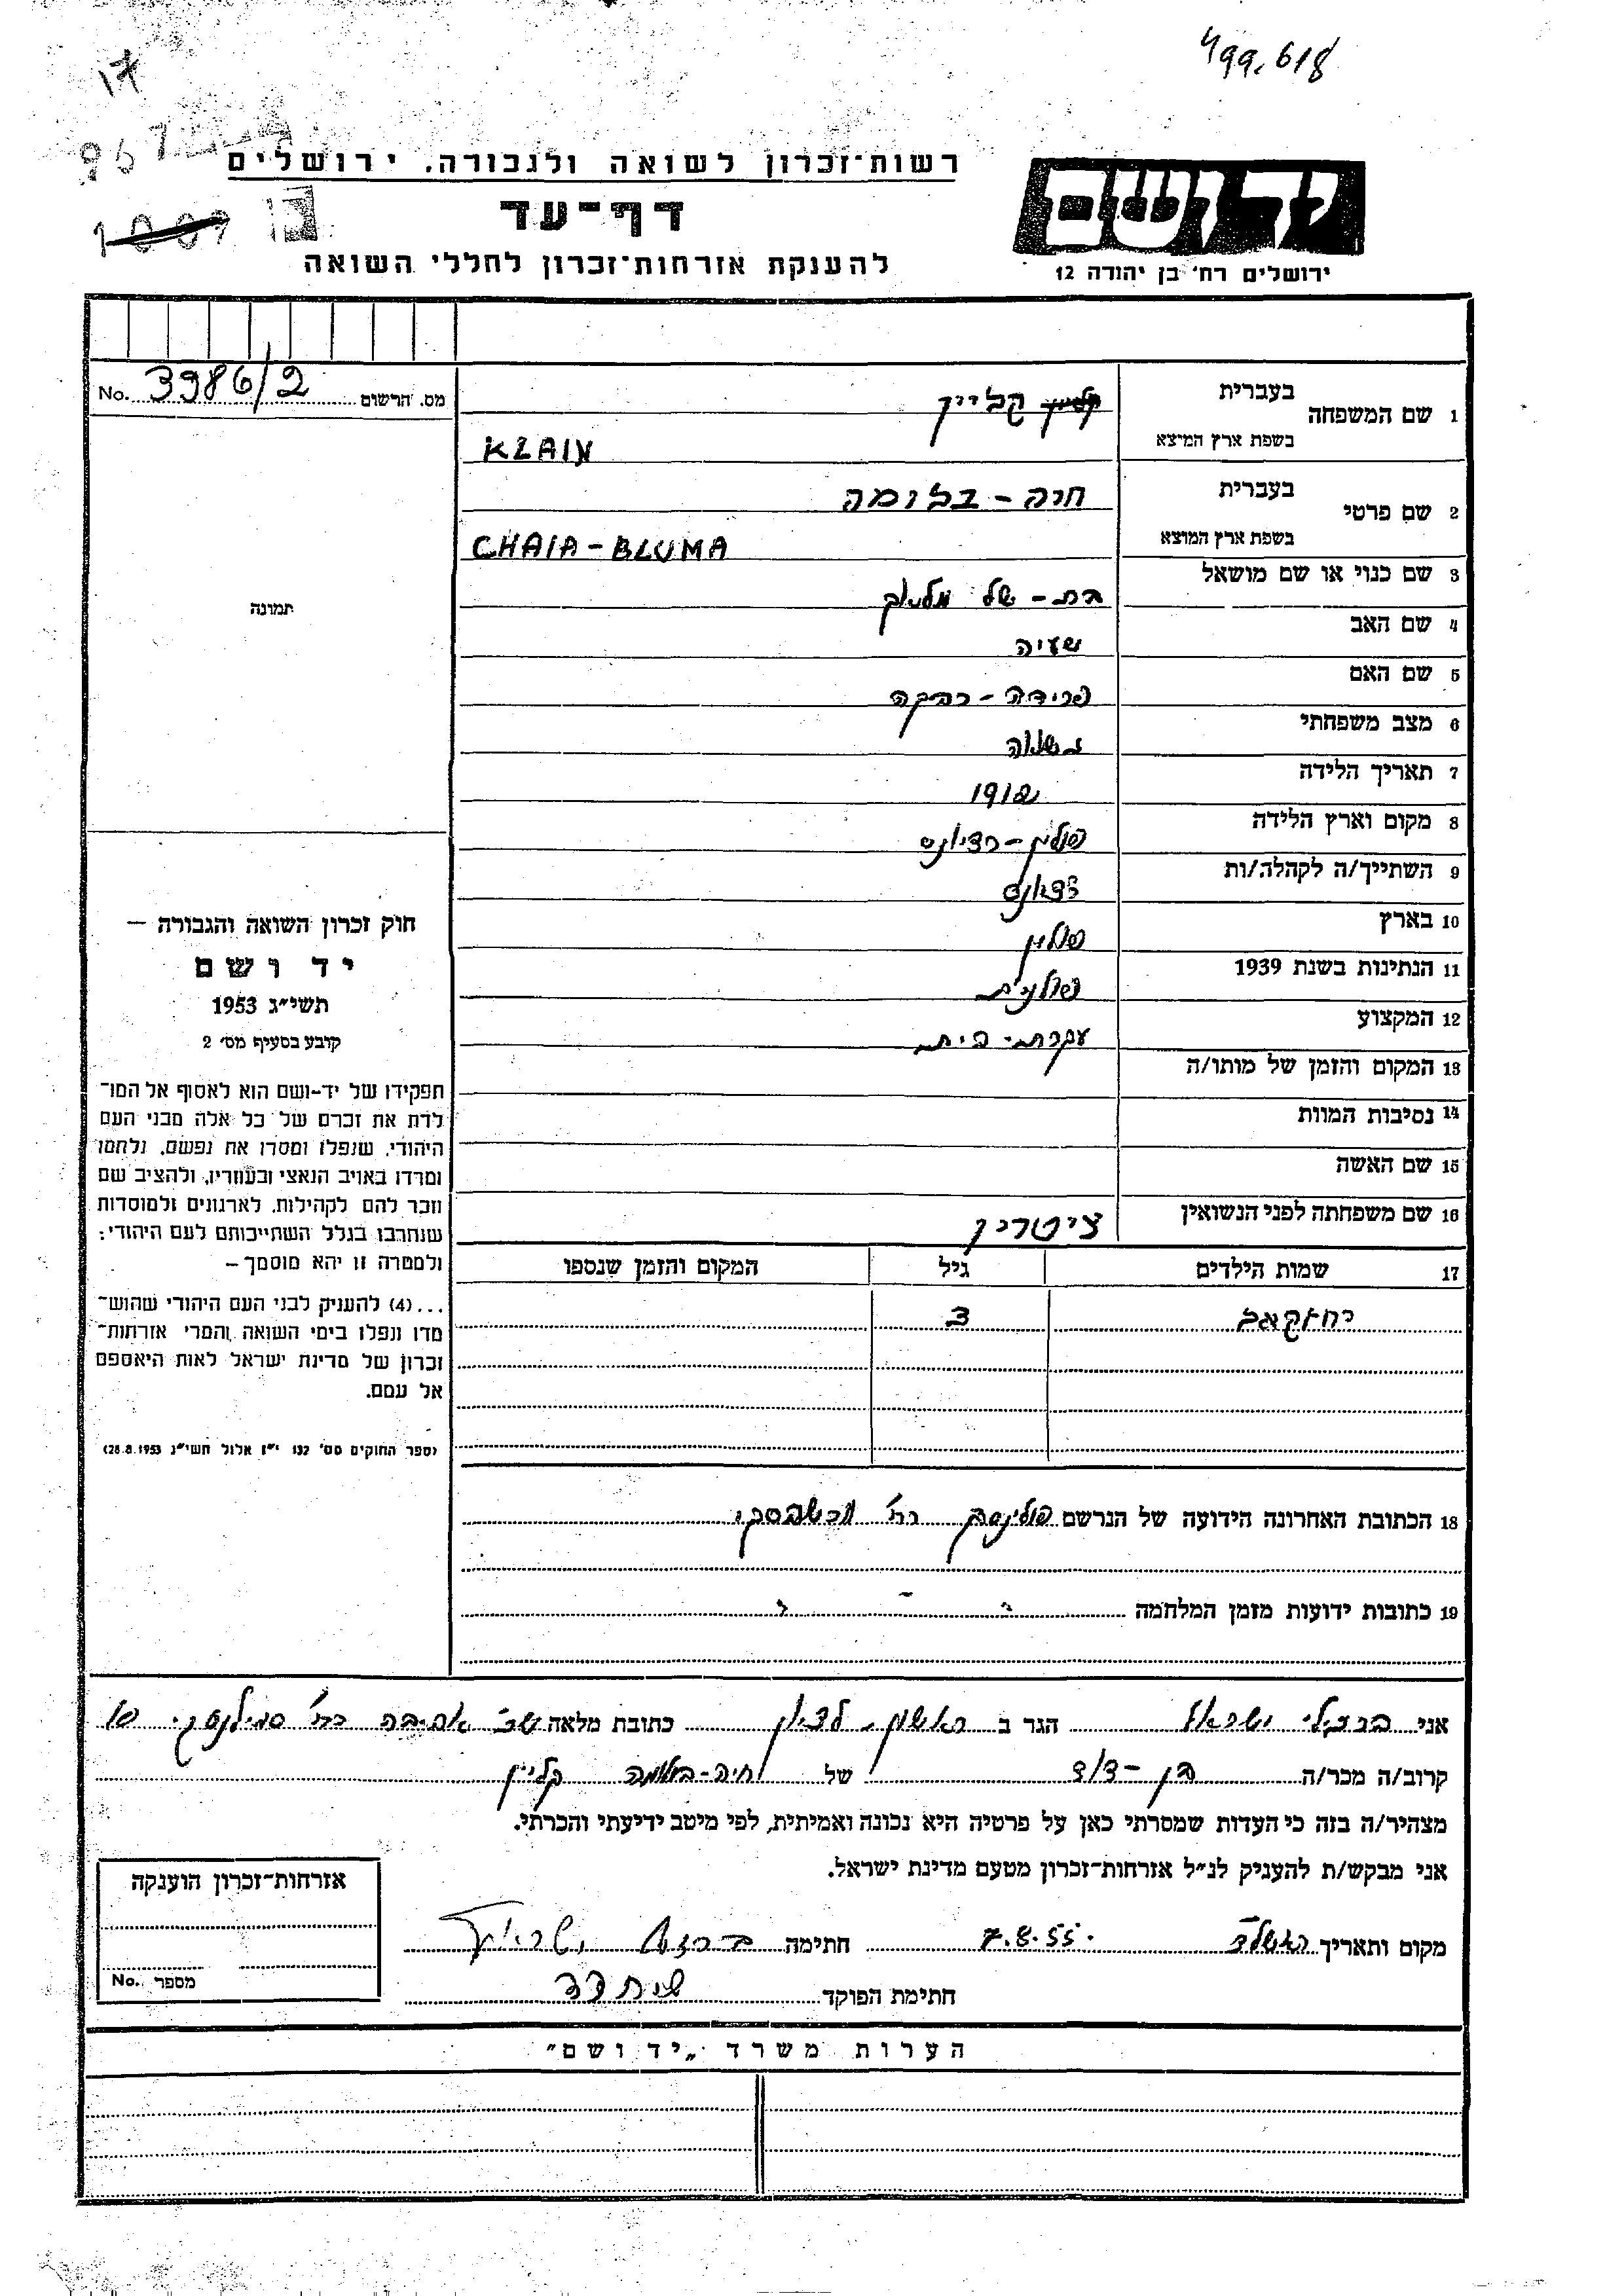 499.618
17
967
רשות־זכרון לשואה ולגבורה, ירושלים
1007
דף־עד
להענקת אזרחות־זכרון לחללי השואה
יד ושם
ירושלים רח' בן יהודה 12
מס. הרשום 3986/2 No.
1 שם המשפחה בעברית קליין
בשפת ארץ המוצא KLAIN
2 שם פרטי בעברית חיה - בלומה
בשפת ארץ המוצא CHAIA - BLUMA
3 שם כנוי או שם מושאל בת - של
4 שם האב שעיה
5 שם האם פרידה - רבקה
6 מצב משפחתי נשואה
7 תאריך הלידה 1912
8 מקום וארץ הלידה פולין -
9 השתייך/ה לקהלה/ות
10 בארץ פולין
11 הנתינות בשנת 1939 פולנית
12 המקצוע עקרת-בית
13 המקום והזמן של מותו/ה
14 נסיבות המוות
15 שם האשה
16 שם משפחתה לפני הנשואין ציטרין
17 שמות הילדים גיל המקום והזמן שנספו
יחזקאל 3
18 הכתובת האחרונה הידועה של הנרשם רח'
19 כתובות ידועות מזמן המלחמה
תמונה
חוק זכרון השואה והגבורה —
יד ושם
תשי״ג 1953
קובע בסעיף מס' 2
תפקידו של יד-ושם הוא לאסוף אל המו־
לדת את זכרם של כל אלה מבני העם
היהודי, שנפלו ומסרו את נפשם, נלחמו
ומרדו באויב הנאצי ובעוזריו, ולהציב שם
וזכר להם לקהילות, לארגונים ולמוסדות
שנחרבו בגלל השתייכותם לעם היהודי;
ולמטרה זו יהא מוסמך –
...(4) להעניק לבני העם היהודי שהוש־
מדו ונפלו בימי השואה והמרי אזרחות־
זכרון של מדינת ישראל לאות היאספם
אל עמם.
(ספר החוקים מס' 132 י״ז אלול תשי״ג 28.8.1953)
אני ברזילי ישראל הגר ב ראשון - לציון כתובת מלאה שכ' אביבה רח' סמילנסקי 10
קרוב/ה מכר/ה בן - דוד של חיה-בלומה קליין
מצהיר/ה בזה כי העדות שמסרתי כאן על פרטיה היא נכונה ואמיתית, לפי מיטב ידיעתי והכרתי.
אני מבקש/ת להעניק לנ״ל אזרחות־זכרון מטעם מדינת ישראל.
מקום ותאריך ראשל״צ 7.8.55 חתימה ברזילי ישראל
חתימת הפוקד
אזרחות־זכרון הוענקה
מספר No.
הערות משרד „יד ושם״